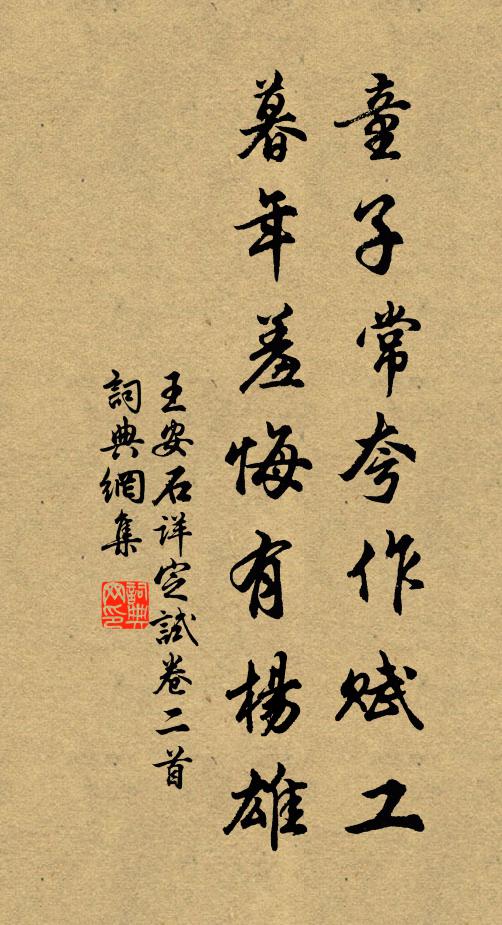 童子常夸作赋工
暮年羞悔有楊雄
王安石详定試卷二首
詞典網集
詞典
网印